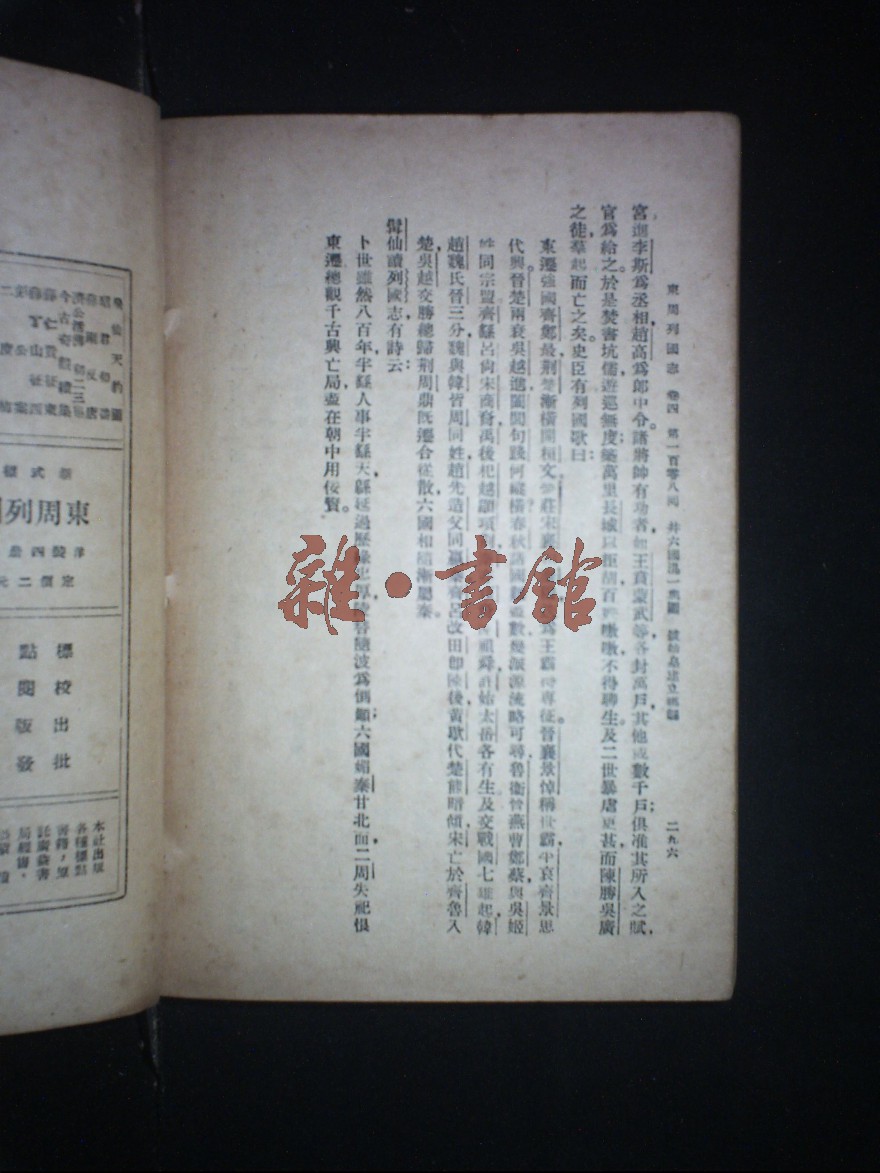 東周列國志 卷四 第一百零八回 并六國混一輿圖 號始皇建立郡縣 二九六
宮進李斯爲丞相趙高爲郎中令諸將帥有功者如王賁蒙武等各封萬戶其他或數千戶俱准其所入之賦
官爲給之於是焚書坑儒遊巡無度築萬里長城以拒胡百姓嗷嗷不得聊生及二世暴虐更甚而陳勝吳廣
之徒羣起而亡之矣史臣有列國歌曰
東遷強國齊鄭最荆楚漸橫開桓文 莊宋襄 爲王霸得專征晉襄景悼稱世霸平哀齊景思
代興晉楚兩衰吳越進闔閭句踐何縱橫春秋 國 數幾派源流略可尋魯衛晉燕曹鄭蔡與吳姬
姓同宗盟齊繇呂尙宋商裔禹後杞越顓頊 祖舜許始太岳各有生及交戰國七雄起韓
趙魏氏晉三分魏與韓皆周同姓趙先造父同嬴 呂改田卽陳後黃歇代楚熊暗傾宋亡於齊魯入
楚吳越交勝總歸荆周鼎旣遷合從散六國相隨漸屬秦
髯仙讀列國志有詩云
卜世雖然八百年半繇人事半繇天緜延過歷緣忠厚 隨波爲倒顚六國媚秦甘北面二周失祀恨
東遷總觀千古興亡局盡在朝中用佞賢
雜·書館
新式標
東周列
洋裝四册
定價二元
標點
校閱
出版
批發
本社出版
各種標點